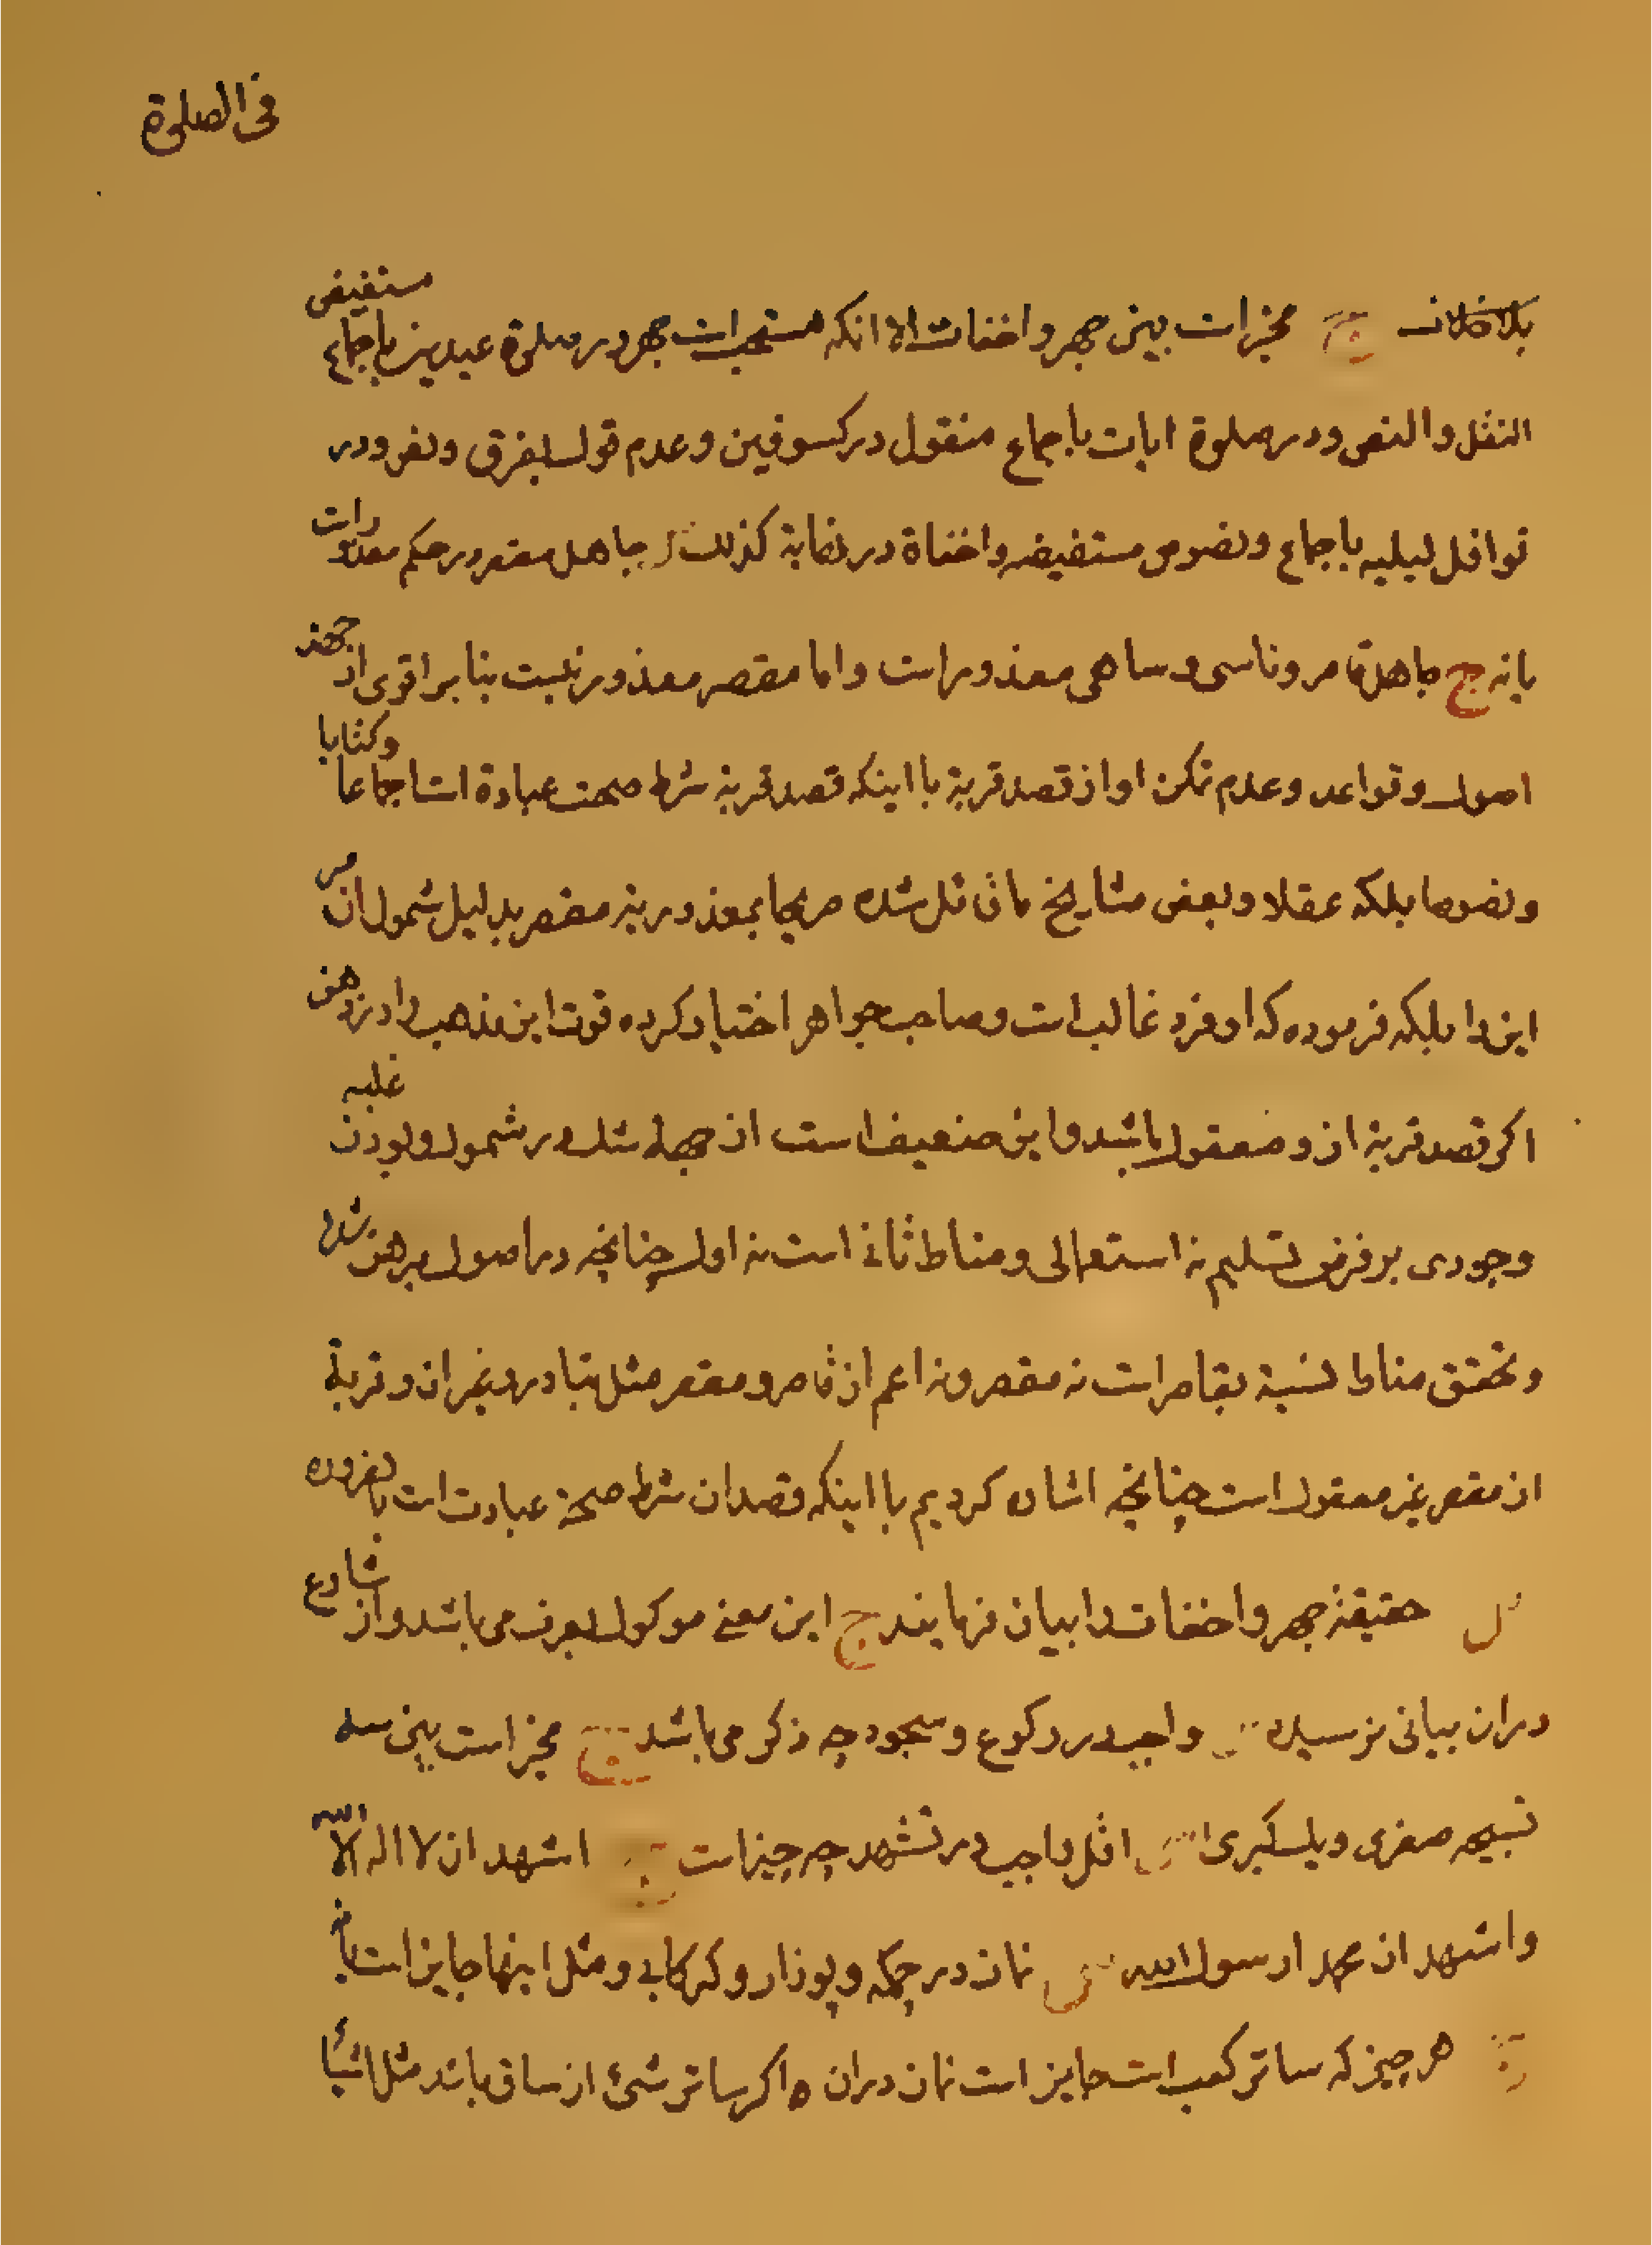 فی الصلوة
بلاخلاف ج مخیر است بین جهر و اخفات الا انکه مستحب است جهر در صلوة عیدین باجماع مستفیض
النقل والنص و در صلوة ایات باجماع منقول در کسوفین و عدم قول بفرق و نص و در
نوافل لیلیه باجماع و نصوص مستفیضه و اخفاة در نهایة کذلک جاهل مقصر در حکم معذور است
یا نه ج جاهل قاصر و ناسی و ساهی معذور است و اما مقصر معذور نیست بنابر اقوی از جهة
اصول و قواعد و عدم تمکن او از قصد قربة با اینکه قصد قربة شرط صحت عبادة است اجماعا و کتابا
و نصوصا بلکه عقلا و بعض مشایخ ما قائل شده صریحا بمعذوریة مقصر بدلیل شمول ان مر
این را بلکه فرموده که او فرد غالب است و صاحب جواهر اختیار کرده قوت این مذهب را در نزد
اکر قصد قربة از و معقول باشد و این ضعیف است از جهة شک در شمول و بودن غلبه
وجودی بر فرض تسلیم نه استعمالی و مناط ثانی است نه اول چنانچه در اصول مبرهن شده
و تحقق مناط نسبة بقاصر است نه مقصر و نه اعم از قاصر و مقصر مثل تبادر در غیر ان و قربة
از مقصر غیر معقول است چنانچه اشاره کردیم با اینکه قصد ان شرط صحة عبادت است بالضروره
س حقیقة جهر و اخفات را بیان فرمایند ج این معنی موکول بعرف می باشد و از شارع
در ان بیانی نرسیده س واجب در رکوع و سجود چه ذکر می باشد ج مخیر است بین سه
تسبیحه صغری و یک کبری س اقل واجب در تشهد چه چیز است ج اشهد ان لا اله الا الله
و اشهد ان محمدا رسول الله س نماز در چکمه و پوزار و کرکابی و مثل اینها جایز است یا نه
ج هر چیز که ساتر کعب است جایز است نماز در ان و اکر ساتر شئ از ساق باشد مثل اشیاء